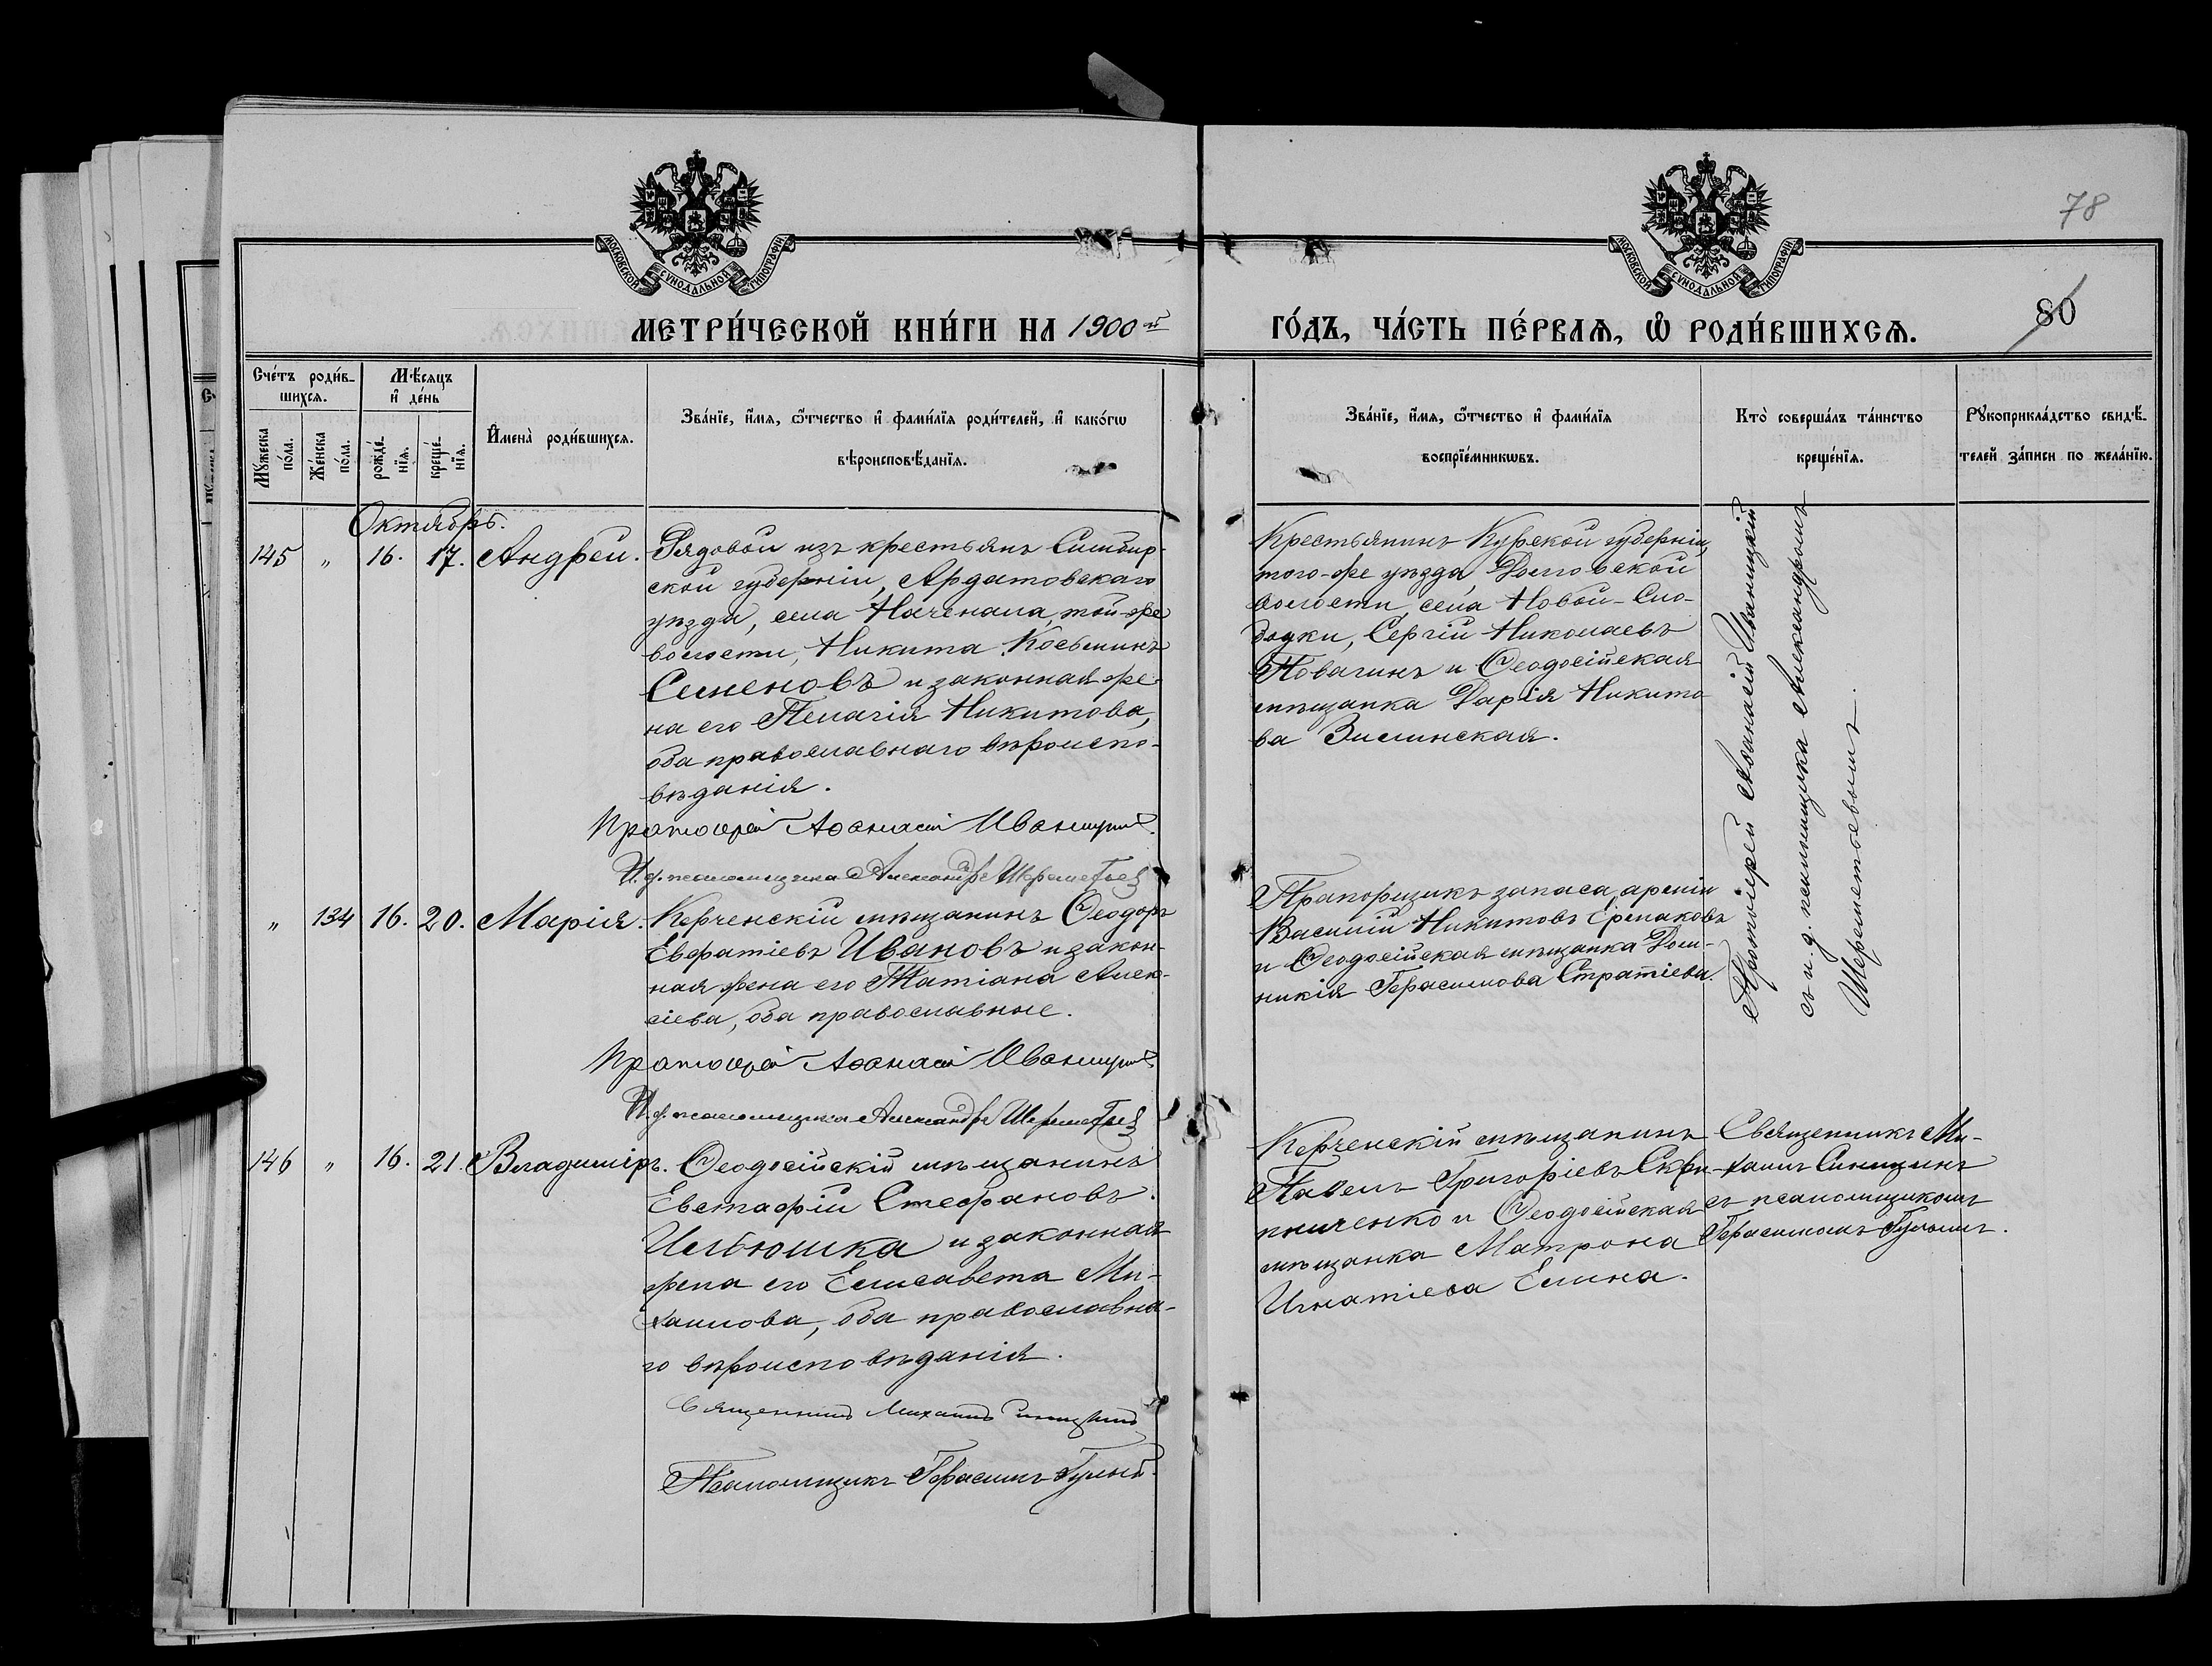 78
МОСКОВСКОЙ СУНОДАЛЬНОЙ ТИПОГРАФІИ
МОСКОВСКОЙ СУНОДАЛЬНОЙ ТИПОГРАФІИ
80
МЕТРИ́ЧЕСКОЙ КНИ́ГИ НА 1900й
ГО́ДЪ, ЧА́СТЬ ПЕ́РВАѦ, Ѡ҆ РОДИ́ВШИХСѦ.
Сче́тъ роди́в-
шихсѧ.
Мѣ́сяцъ
и҆ де́нь
Мꙋ́жеска
по́ла.
Же́нска
по́ла.
рожде́-
нїѧ.
креще́-
нїѧ.
И҆мена̀ роди́вшихсѧ.
Зва́нїе, и҆́мя, ѻ҆́тчество и҆ фами́лїѧ роди́телей, и҆ како́гѡ
вѣроисповѣ́данїѧ.
Зва́нїе, и҆́мя, ѻ҆́тчество и҆ фами́лїѧ
воспрїе́мникѡвъ.
Кто̀ соверша́лъ та́инство
креще́нїѧ.
Рꙋкоприкла́дство свидѣ́-
телей за́писи по жела́нїю.
Октябрь.
145 " 16. 17. Андрей.
Рядовой изъ крестьянъ Симбир-
ской губерніи, Ардатовскаго
уѣзда, села Наченала, той-же
волости, Никита Косьминъ
Семеновъ и законная же-
на его Пелагія Никитова,
оба православнаго вѣроиспо-
вѣданія.
Протоіерей Аѳанасій Иваницкій
И. д. псаломщика Александръ Шереметьев
Крестьянинъ Курской губерніи,
того-же уѣзда, Долговской
волости, села Новой-Сло-
бодки, Сергій Николаевъ
и Ѳеодосійская
мѣщанка Дарія Никито-
ва Зилинская.
Протоіерей Аѳанасій Иваницкій
съ и. д. псаломщика Александромъ
Шереметьевымъ.
" 134 16. 20. Марія.
Керченскій мѣщанинъ Ѳеодоръ
Ивановъ и закон-
ная жена его Татіана Алек-
сіева, оба православные.
Протоіерей Аѳанасій Иваницкій
И. д. псаломщика Александръ Шереметьев
Прапорщикъ запаса арміи
Василій Никитовъ Ермаковъ
и Ѳеодосійская мѣщанка Дом-
никія Герасимова Стратіева.
146 " 16. 21. Владиміръ.
Ѳеодосійскій мѣщанинъ
Евстафій Стефановъ
Ильюшка и законная
жена его Елисавета Ми-
хаилова, оба православна-
го вѣроисповѣданія.
Священникъ Михаилъ Синицинъ
Псаломщикъ Герасимъ
Керченскій мѣщанинъ
Павелъ Григоріевъ Скри-
пниченко и Ѳеодосійская
мѣщанка Матрона
Игнатіева Елина.
Священникъ Ми-
хаилъ Синицинъ
съ псаломщикомъ
Герасимомъ